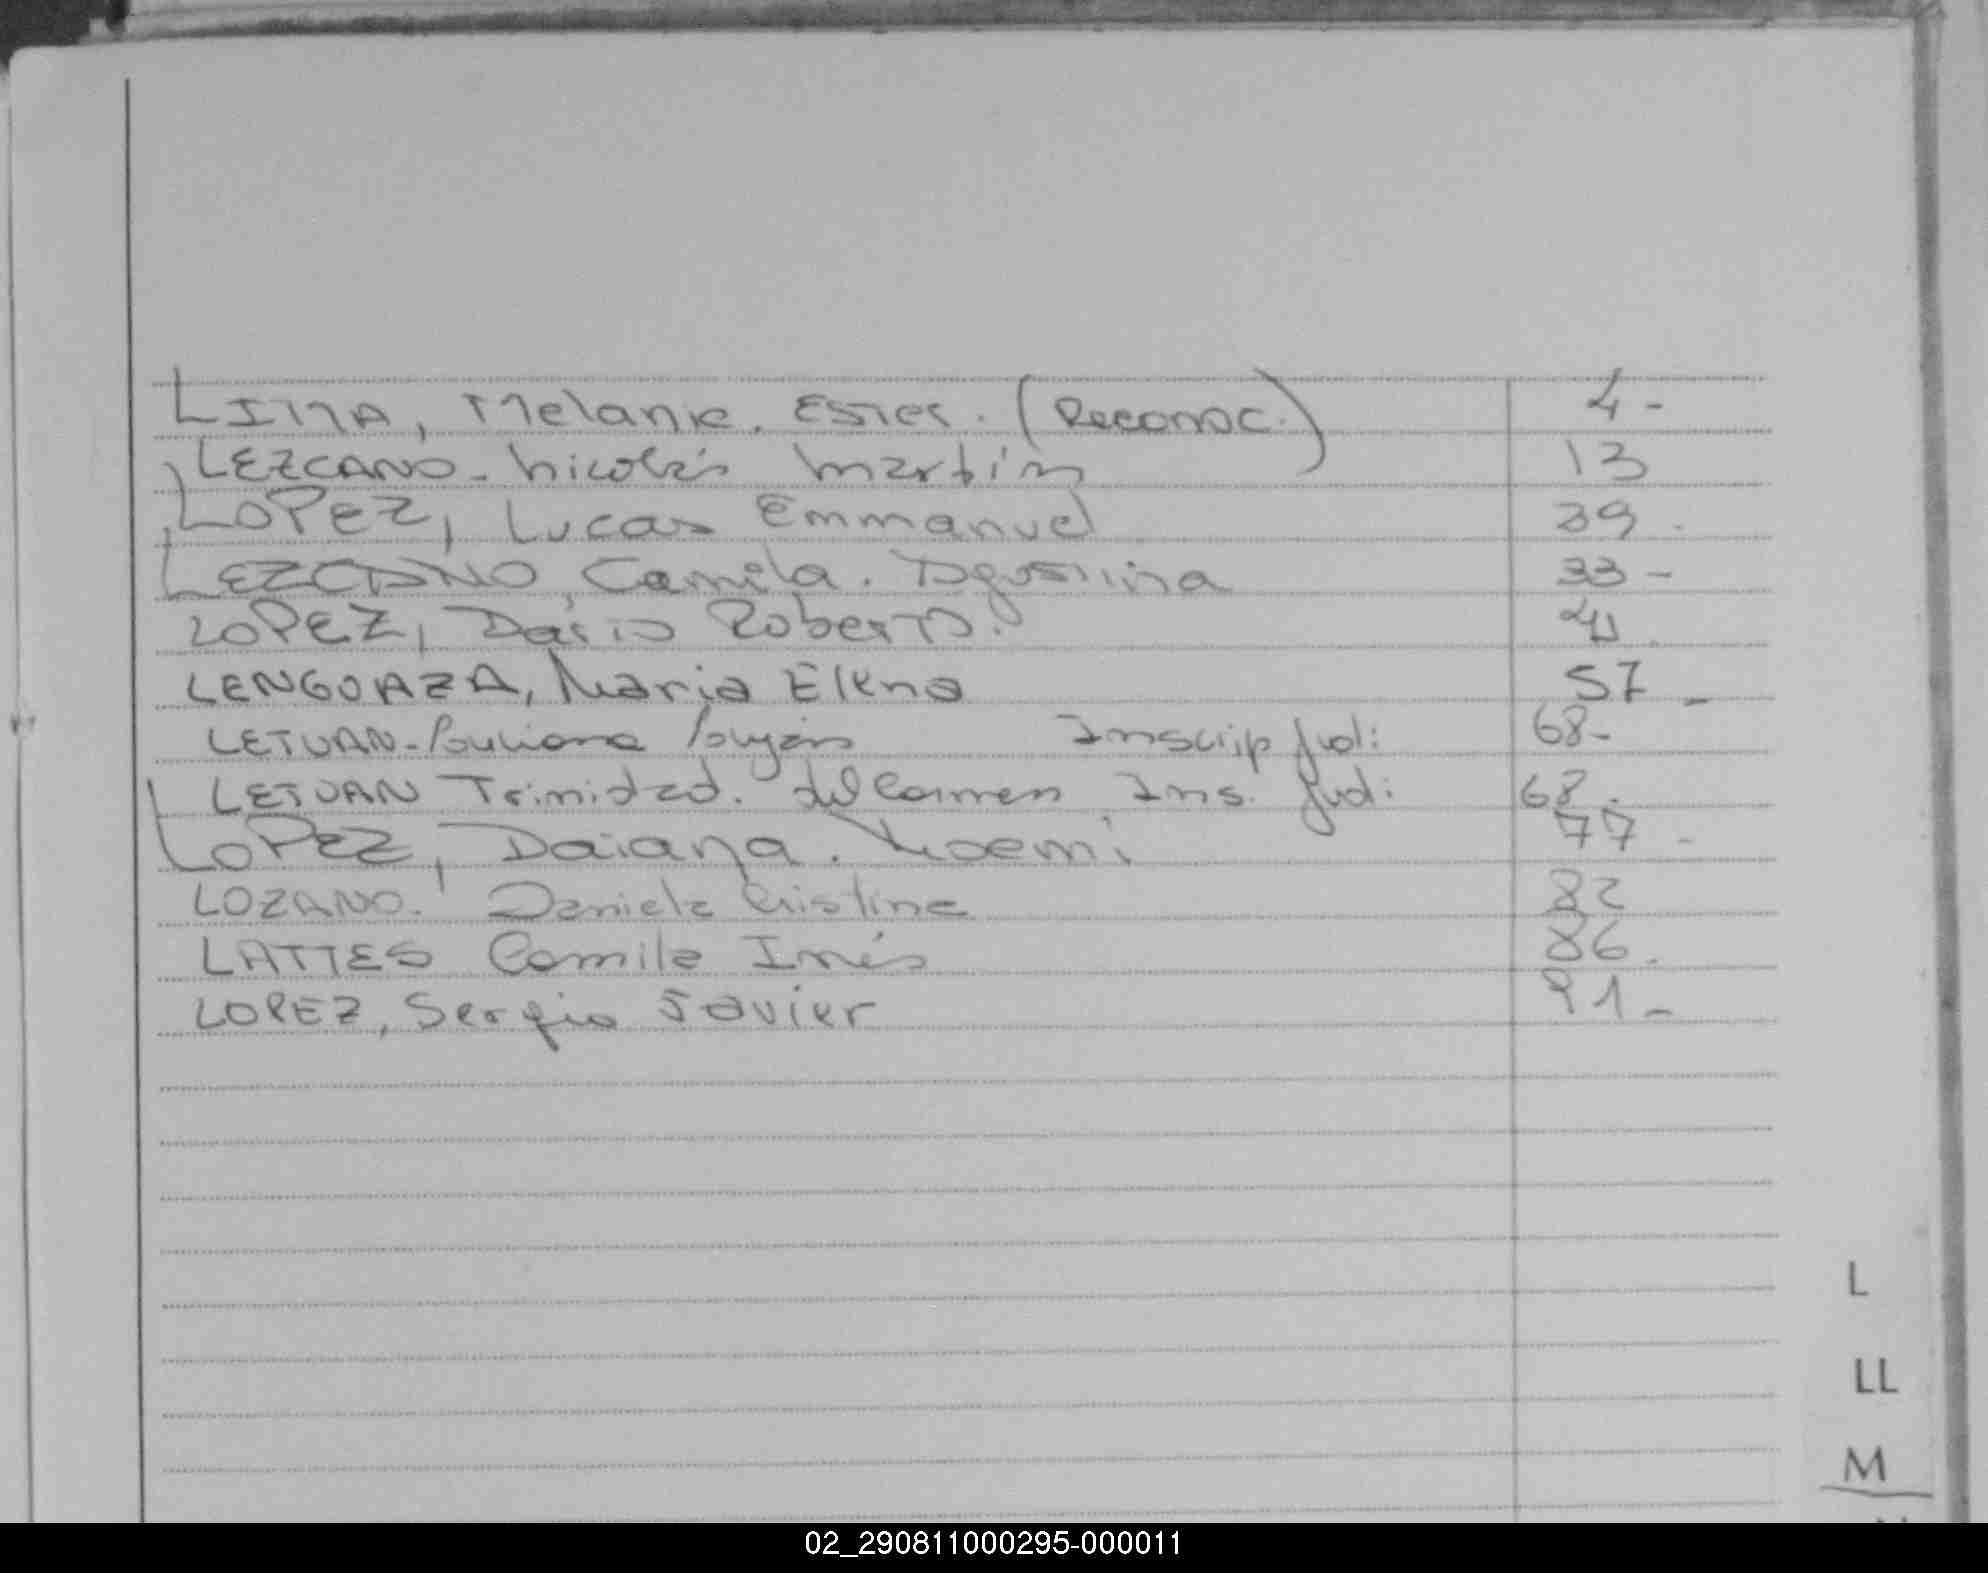 LIMA, Melanie. Ester. (Reconoc.) 4-
LEZCANO- Nicolás Martín 13
LOPEZ, Lucas Emmanuel 39.
LEZCANO, Camila. Agustina 33-
LOPEZ, Darío Roberto. 41.
LENGOAZA, Maria Elena 57-
LETUAN- Luján Inscrip Jud: 68-
LETUAN Trinidad. del Carmen Ins. Jud: 68.
LOPEZ, Daiana. Noemi 77-
LOZANO. Daniela Cristina 82
LATTES Camila Inés 86.
LOPEZ, Sergio Javier 91-
L
LL
M
02_290811000295-000011